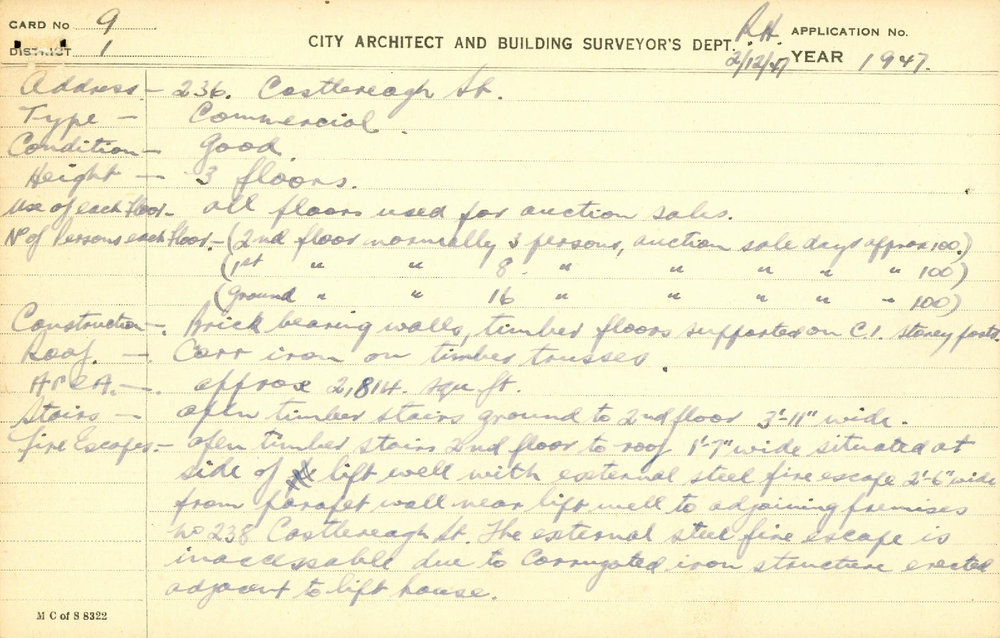 CARD No 9
DISTRICT 1
CITY ARCHITECT AND BUILDING SURVEYOR'S DEPT. R.H. APPLICATION No.
2/12/47 YEAR 1947.
Address – 236. Castlereagh St.
Type – Commercial
Condition – Good
Height – 3 floors.
Use of each Floor – all floors used for auction sales.
No of Persons each Floor – (2nd floor normally 3 persons, auction sale days approx 100.)
(1st " " 8 " " " " " 100)
(Ground " " 16 " " " " " 100)
Construction – Brick bearing walls, timber floors supported on C.I. storey posts.
Roof. – Corr iron on timber trusses
Area. – approx 2,814. squ ft.
Stairs – open timber stairs ground to 2nd floor 3'-11" wide.
Fire Escapes – open timber stairs 2nd floor to roof 1'-7" wide situated at
side of lift well with external steel fire escape 2'-6" wide
from parapet wall near lift well to adjoining premises
No 238 Castlereagh St. The external steel fire escape is
inaccessable due to corrugated iron structure erected
adjacent to lift house.
M C of S 8322